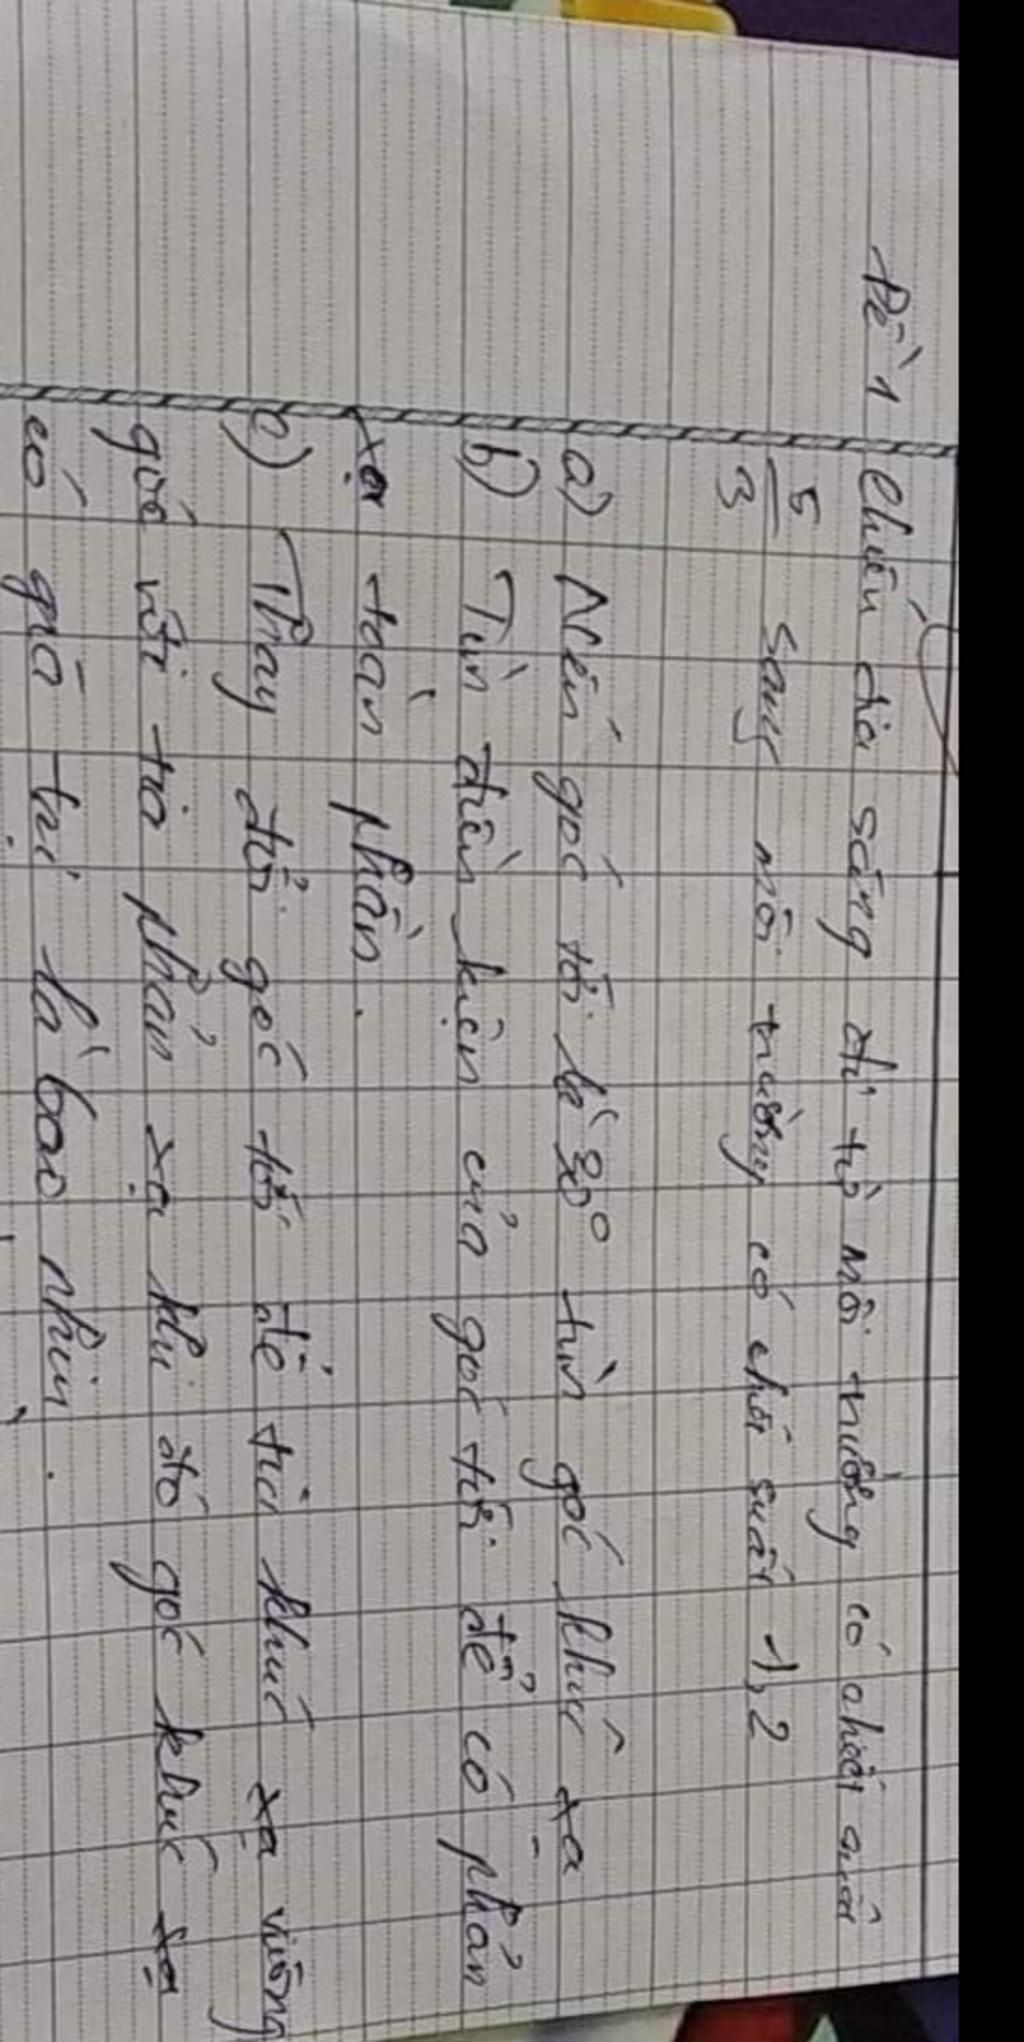 Đề 1 Chiếu chùm sáng đi từ môi trường có chiết suất
5/3 sang môi trường có chiết suất 1,2
a) Nếu góc tới là 30° tìm góc khúc xạ
b) Tìm điều kiện của góc tới để có phản
xạ toàn phần.
c) Thay đổi góc tới để tia khúc xạ vuông
góc với tia phản xạ khi đó góc khúc xạ
có giá trị là bao nhiu.